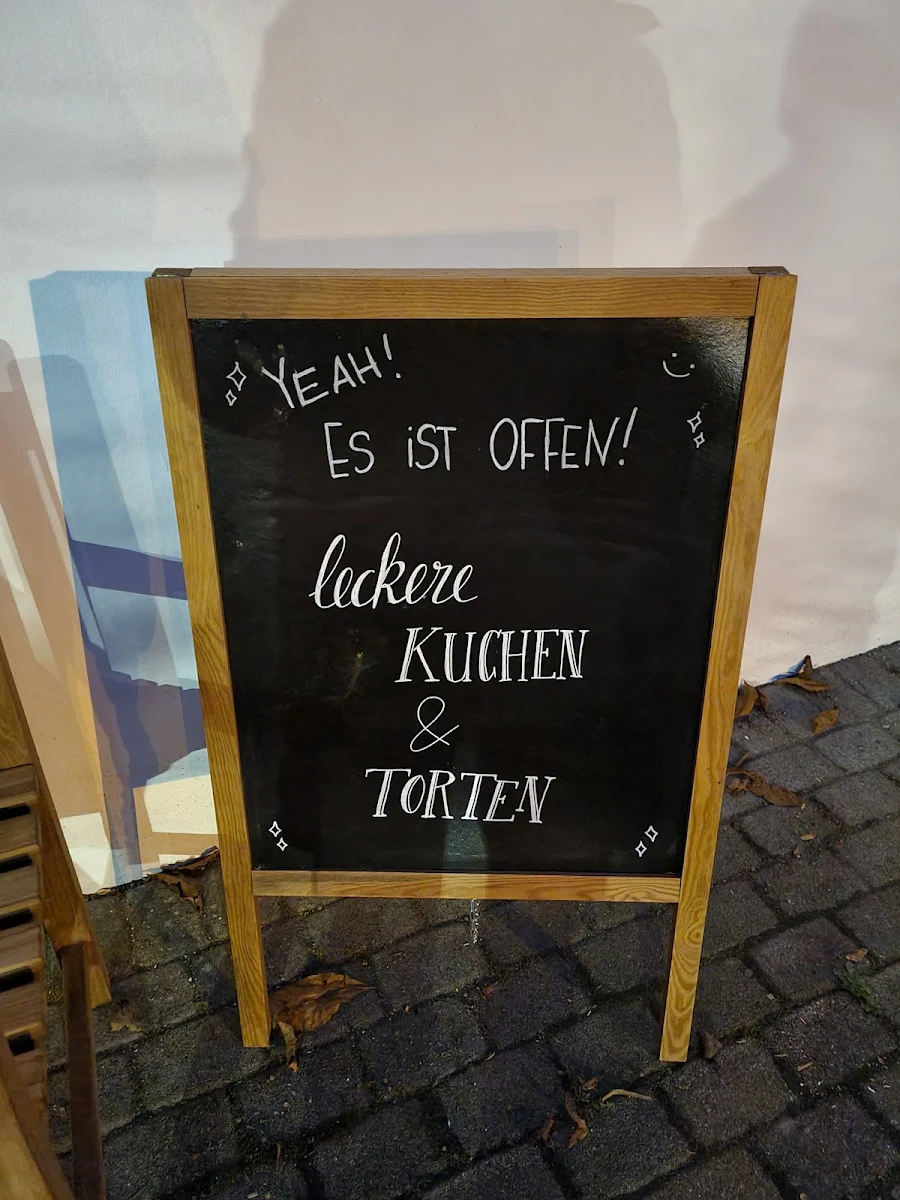 YEAH!
ES iST OFFEN!
leckere
KUCHEN
&
TORTEN